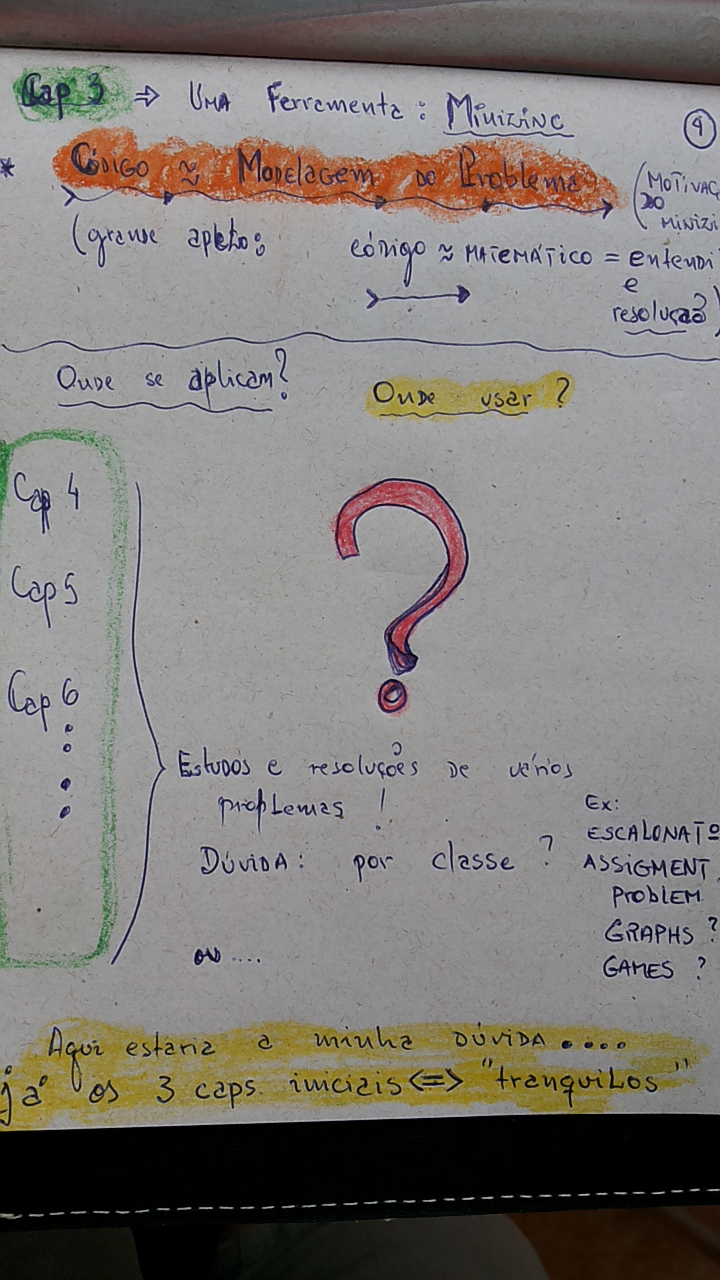 Cap 3 ⇒ UMA Ferramenta: MINIZINC
4
* CÓDIGO ≈ Modelagem do Problema
(MOTIVAÇ
DO
MINIZI
(grande apelo:
código ≈ MATEMÁTICO = entendi
e
resolução)
Onde se aplicam?
Onde usar?
Cap 4
Cap 5
Cap 6
?
Estudos e resoluções de vários
problemas!
Dúvida: por classe?
ou ....
Ex:
ESCALONATO
ASSIGMENT
PROBLEM
GRAPHS?
GAMES?
Aqui estaria a minha DÚVIDA ....
já os 3 caps. iniciais <=> "tranquilos"